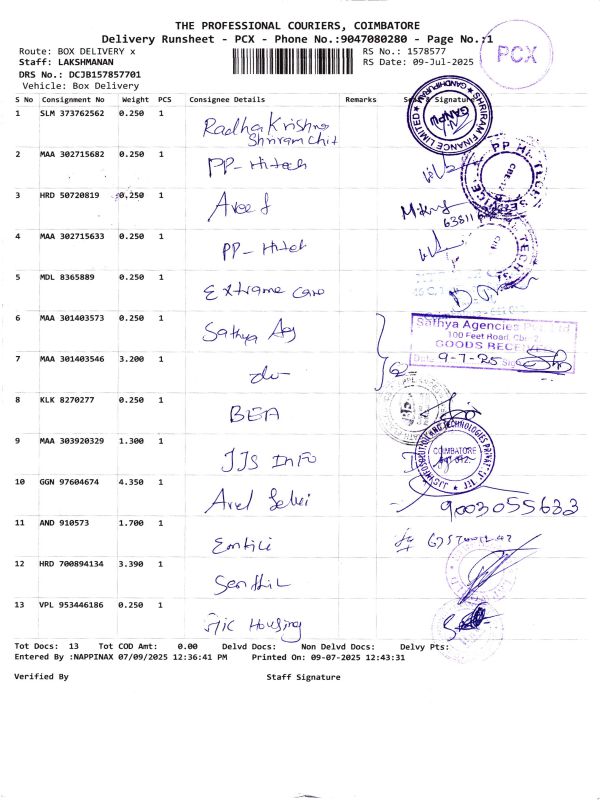 THE PROFESSIONAL COURIERS, COIMBATORE
Delivery Runsheet - PCX - Phone No.:9047080280 - Page No.:1
Route: BOX DELIVERY x RS No.: 1578577
Staff: LAKSHMANAN RS Date: 09-Jul-2025
PCX
DRS No.: DCJB157857701
Vehicle: Box Delivery
S No Consignment No Weight PCS Consignee Details Remarks Signature
1 SLM 373762562 0.250 1 Radha Krishna
Shriram Chit
SHRIRAM FINANCE LIMITED
2 MAA 302715682 0.250 1 PP-Hitech
PP HI TECH SERVICE
3 HRD 50720819 0.250 1
4 MAA 302715633 0.250 1 PP-Hitech
5 MDL 8365889 0.250 1 Extrame Care
6 MAA 301403573 0.250 1 Sathya Ag
Sathya Agencies
100 Feet Road, Cbe
GOODS RECEIVED
Date 9-7-25
7 MAA 301403546 3.200 1 do
8 KLK 8270277 0.250 1 BEA
9 MAA 303920329 1.300 1 JJS INFO
COIMBATORE
10 GGN 97604674 4.350 1 Arul Selvi
9003055633
11 AND 910573 1.700 1
12 HRD 700894134 3.390 1 Senthil
13 VPL 953446186 0.250 1 Housing
Tot Docs: 13 Tot COD Amt: 0.00 Delvd Docs: Non Delvd Docs: Delvy Pts:
Entered By :NAPPINAX 07/09/2025 12:36:41 PM Printed On: 09-07-2025 12:43:31
Verified By Staff Signature